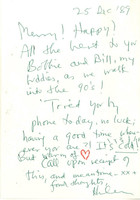 25 Dec '89
Merry! Happy!
All the best to you
Bobbie and Bill, my
buddies, as we walk
into the 90's!
Tried you by
phone today, no luck,
having a good time, when-
ever you are?! It's COLD!
But whom of
Call upon receipt of
this, and meantime - xx +
four doughty,